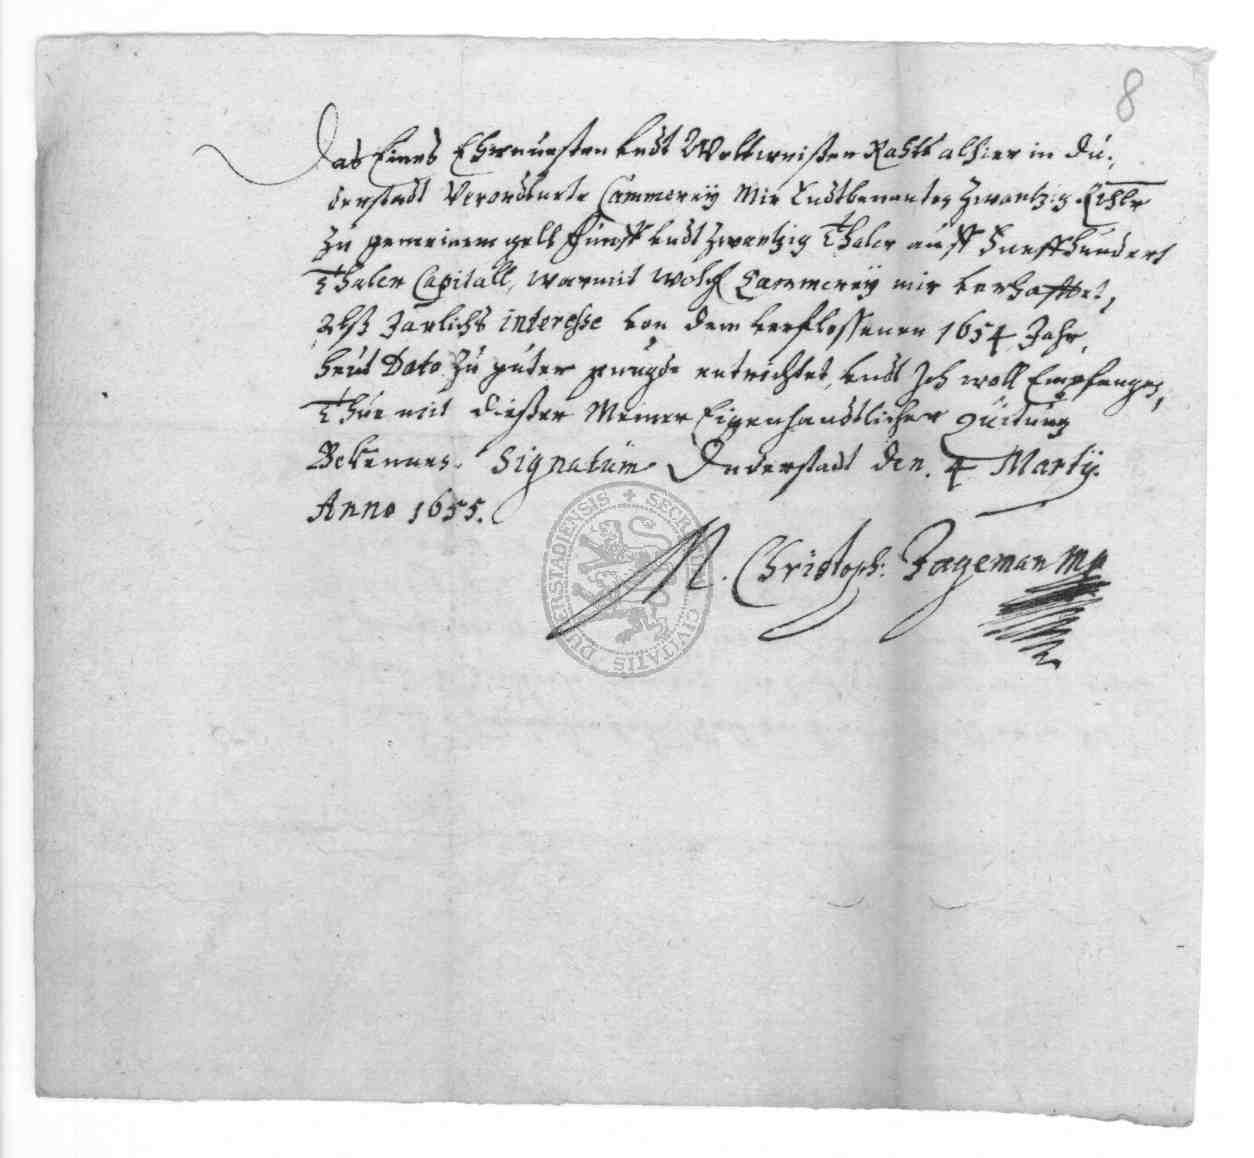 8
Das Eines Ehrnuesten undt Wollweißen Rahts alhier in Du-
derstadt Verordtnete Cammerey Mir Endtbenanten Zwantzig Rthlr
zu gemeinem gelt fünff undt zwantzig Thaler auff Fueffhundert
Thaler Capitall, warmit wolg Cammereÿ mir verhafftet,
Alß Jarlichs interesse von dem verflossenen 1654 Jahr,
heut Dato zu guter gnuge entrichtet, undt Ich woll Empfangen,
Thue mit dießer Meiner Eigenhandtlicher Quitung
Bekennen. Signatum Duderstadt den. 4 Martÿ.
Anno 1655.
M. Christoph: Jageman mp
SECRETUM CIVITATIS DUDERSTADIENSIS